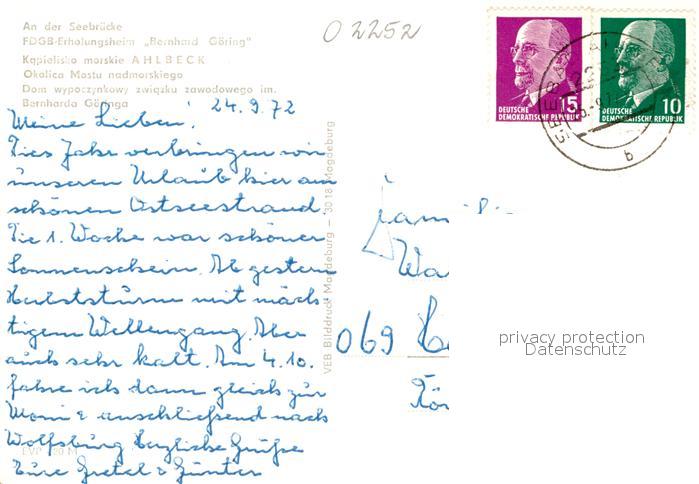 An der Seebrücke
FDGB-Erholungsheim „Bernhard Göring"
Kąpielisko morskie AHLBECK
Okolica Mostu nadmorskiego
Dom wypoczynkowy związku zawodowego im.
Bernharda Göringa
O 2252
24.9.72
Meine Lieben!
Dies Jahr verbringen wir
unseren Urlaub hier am
schönen Ostseestrand.
Die 1. Woche war schöner
Sonnenschein. Ab gestern
Herbststurm mit mäch-
tigem Wellengang. Aber
auch sehr kalt. Am 4.10.
fahre ich dann gleich zur
Moni & anschließend nach
Wolfsburg Herzliche Grüße
Eure Gretel & Günter
EVP 20 M
VEB Bilddruck Magdeburg – 3018 Magdeburg
DEUTSCHE
DEMOKRATISCHE REPUBLIK
15
DEUTSCHE
DEMOKRATISCHE REPUBLIK
10
b
069
privacy protection
Datenschutz